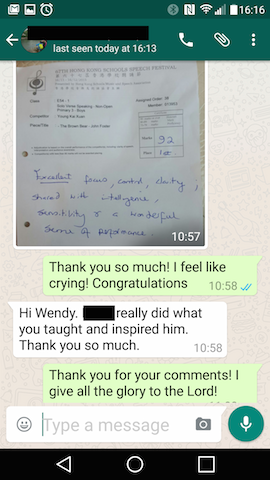 16:16
last seen today at 16:13
67TH HONG KONG SCHOOLS SPEECH FESTIVAL
Class:
Solo Verse Speaking - Non-Open
Competitor:
Piece/Title:
The Brown Bear - John Foster
Marks:
92
Place:
1st.
Excellent focus, control, clarity,
shared with intelligence,
sensitivity & a wonderful
sense of performance.
10:57
Thank you so much! I feel like
crying! Congratulations
10:58
Hi Wendy. really did what
you taught and inspired him.
Thank you so much.
10:58
Thank you for your comments! I
give all the glory to the Lord!
Type a message